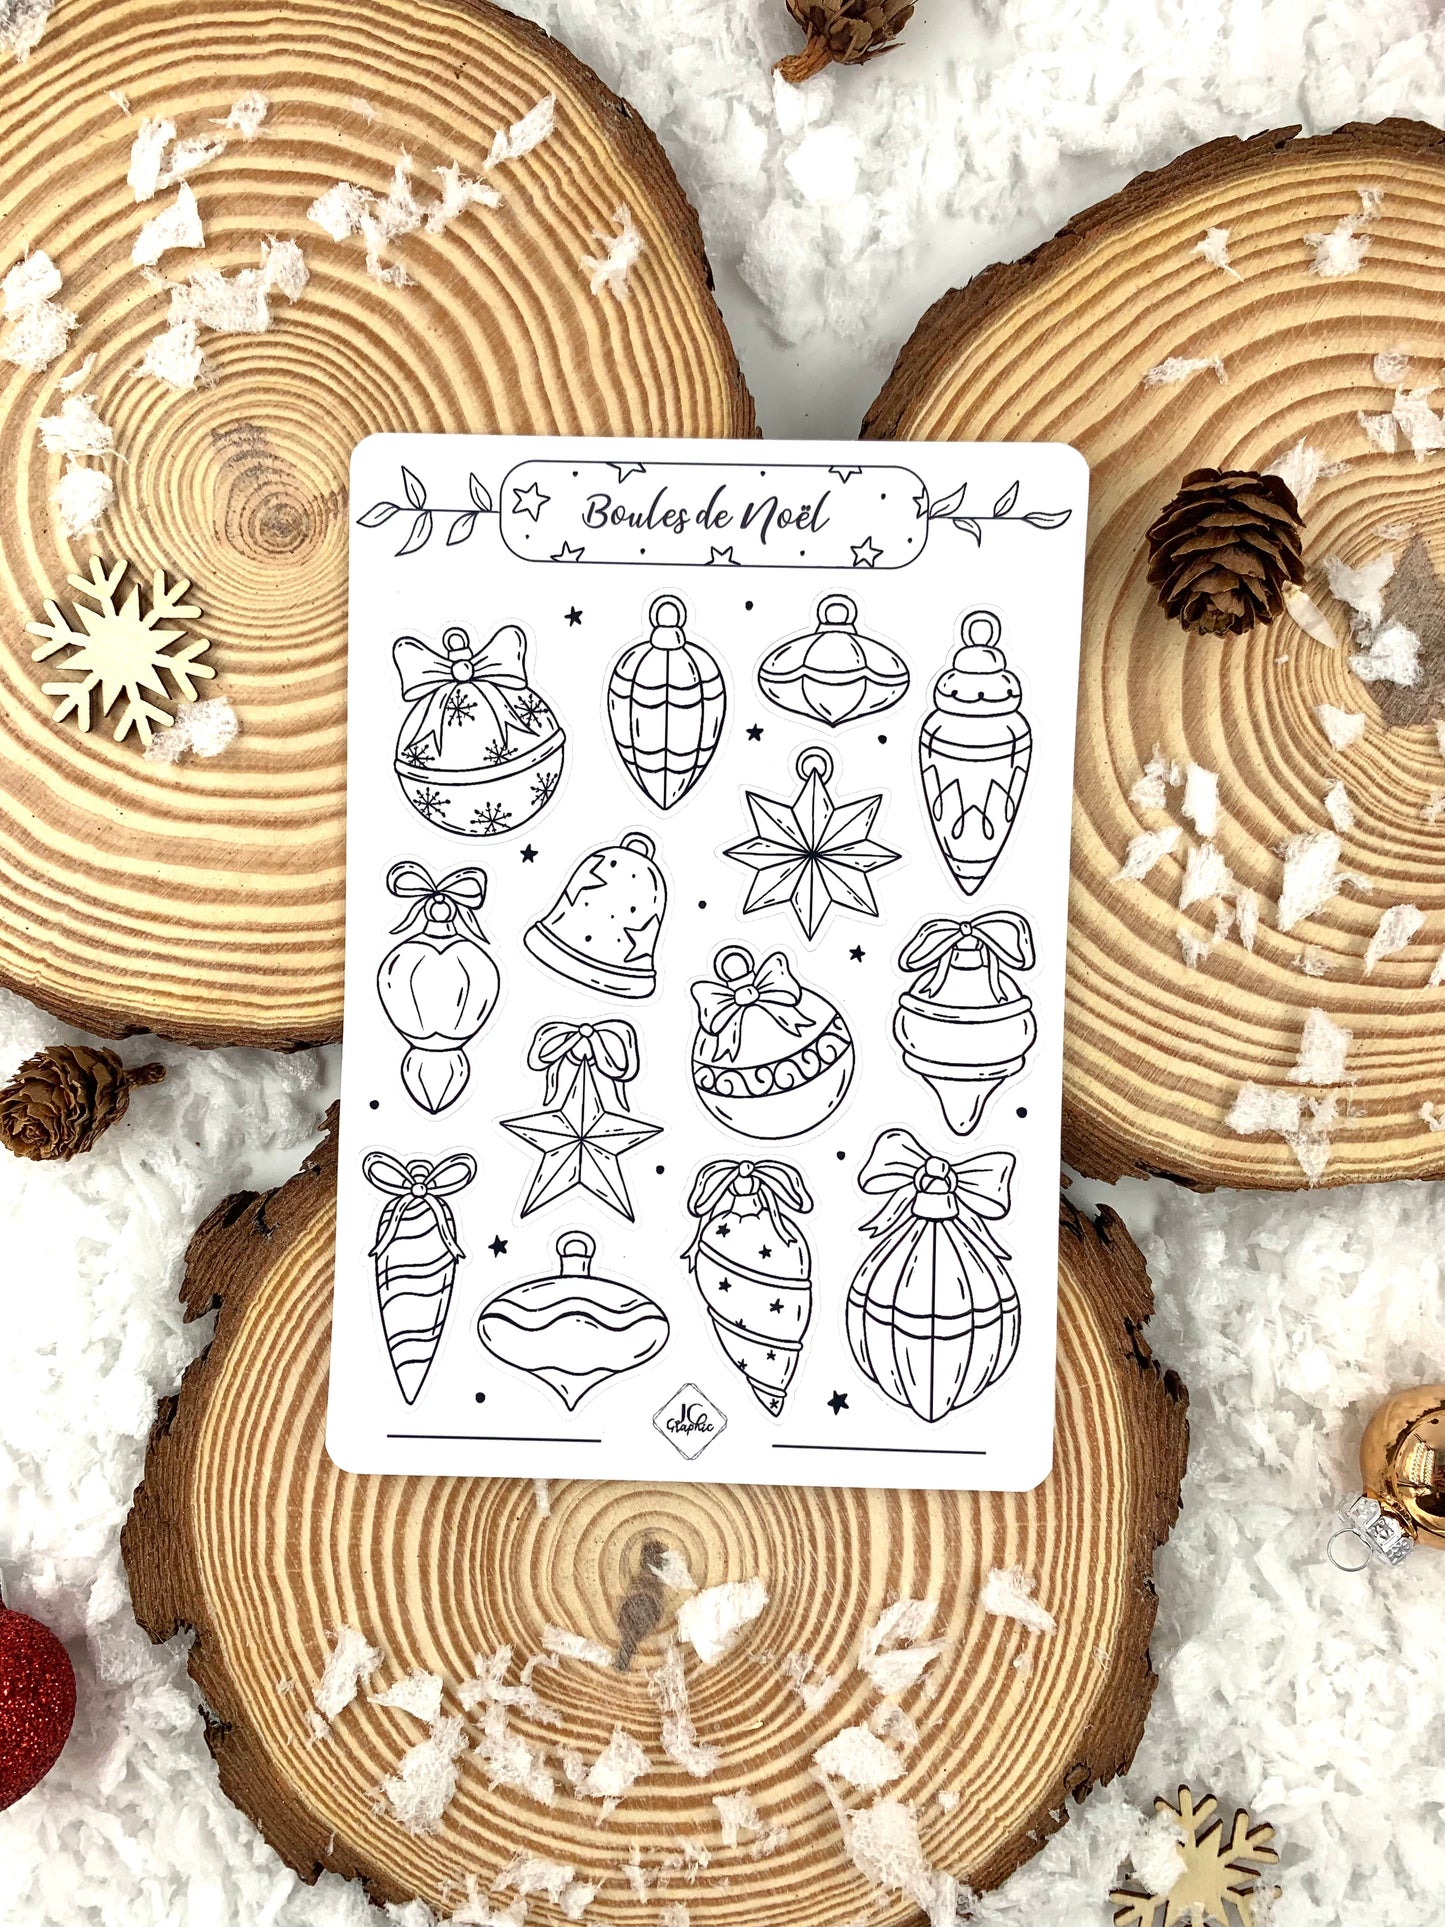 Boules de Noël
JC
Graphic